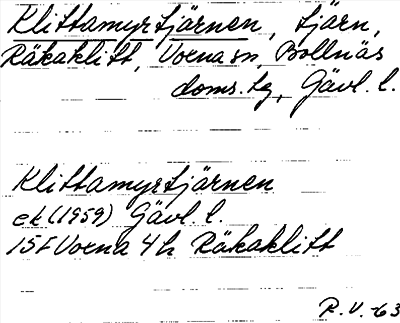 Klittamyrtjärnen, tjärn,
Räkaklitt, Voxna sn, Bollnäs
doms. tg, Gävl. l.
Klittamyrtjärnen
ek (1959) Gävl. l.
15F Voxna 4h Räkaklitt
R. V. -63